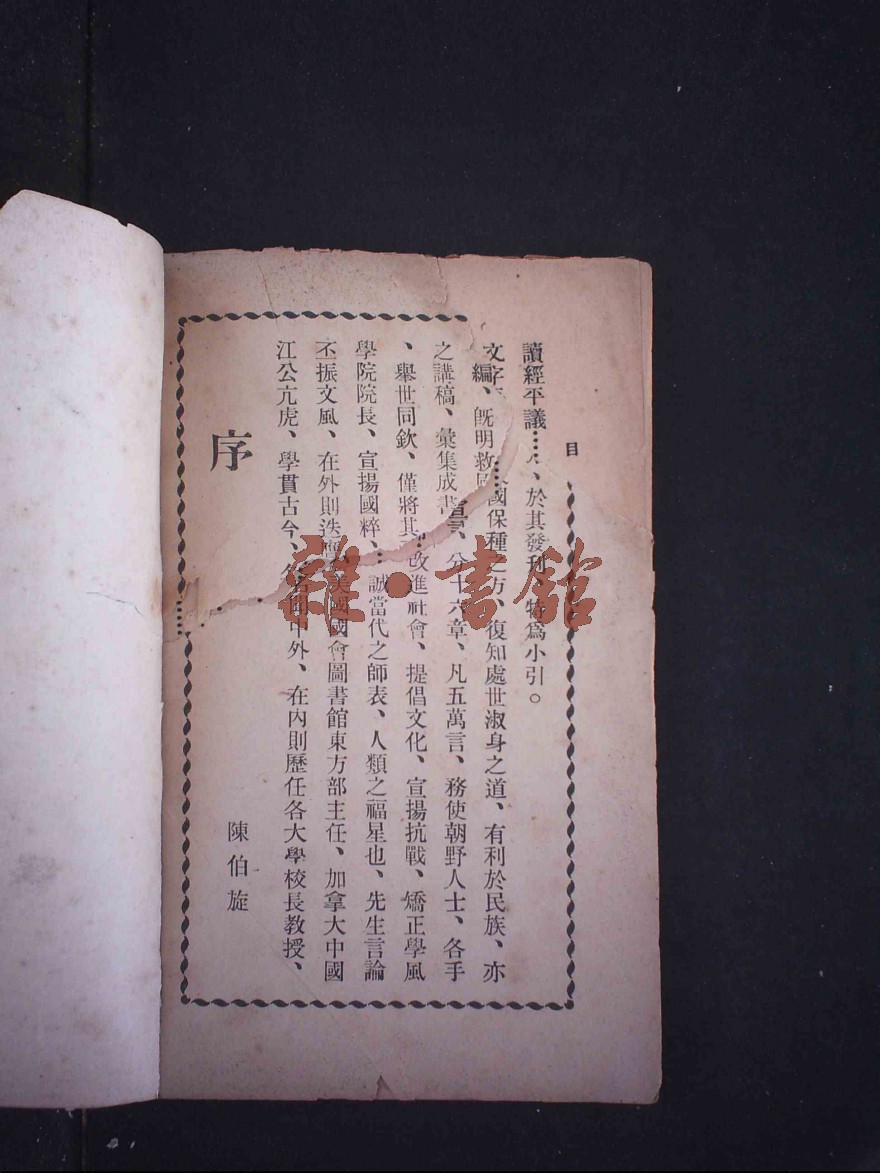 序
陳伯旋
江公亢虎、學貫古今、名聞中外、在內則歷任各大學校長教授、
丕振文風、在外則迭膺美國國會圖書館東方部主任、加拿大中國
學院院長、宣揚國粹、誠當代之師表、人類之福星也、先生言論
、舉世同欽、僅將其改進社會、提倡文化、宣揚抗戰、矯正學風
之講稿、彙集成書、分十六章、凡五萬言、務使朝野人士、各手
編、既明救國保種之方、復知處世淑身之道、有利於民族、亦
、於其發刊、特爲小引。
目
讀經平議……
文字
宣言
雜·書館